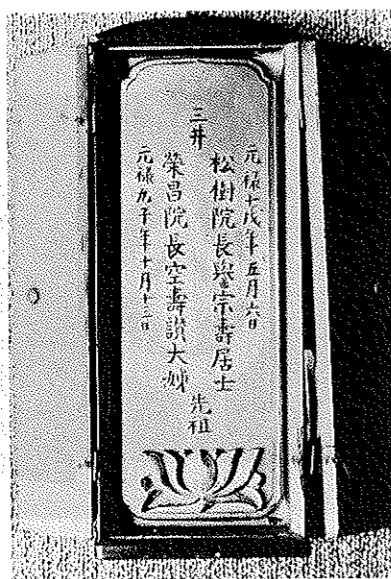 元禄七戌年五月六日
松樹院長譽宗壽居士
三井
先祖
榮昌院長空壽讃大姉
元禄九子年十月十二日